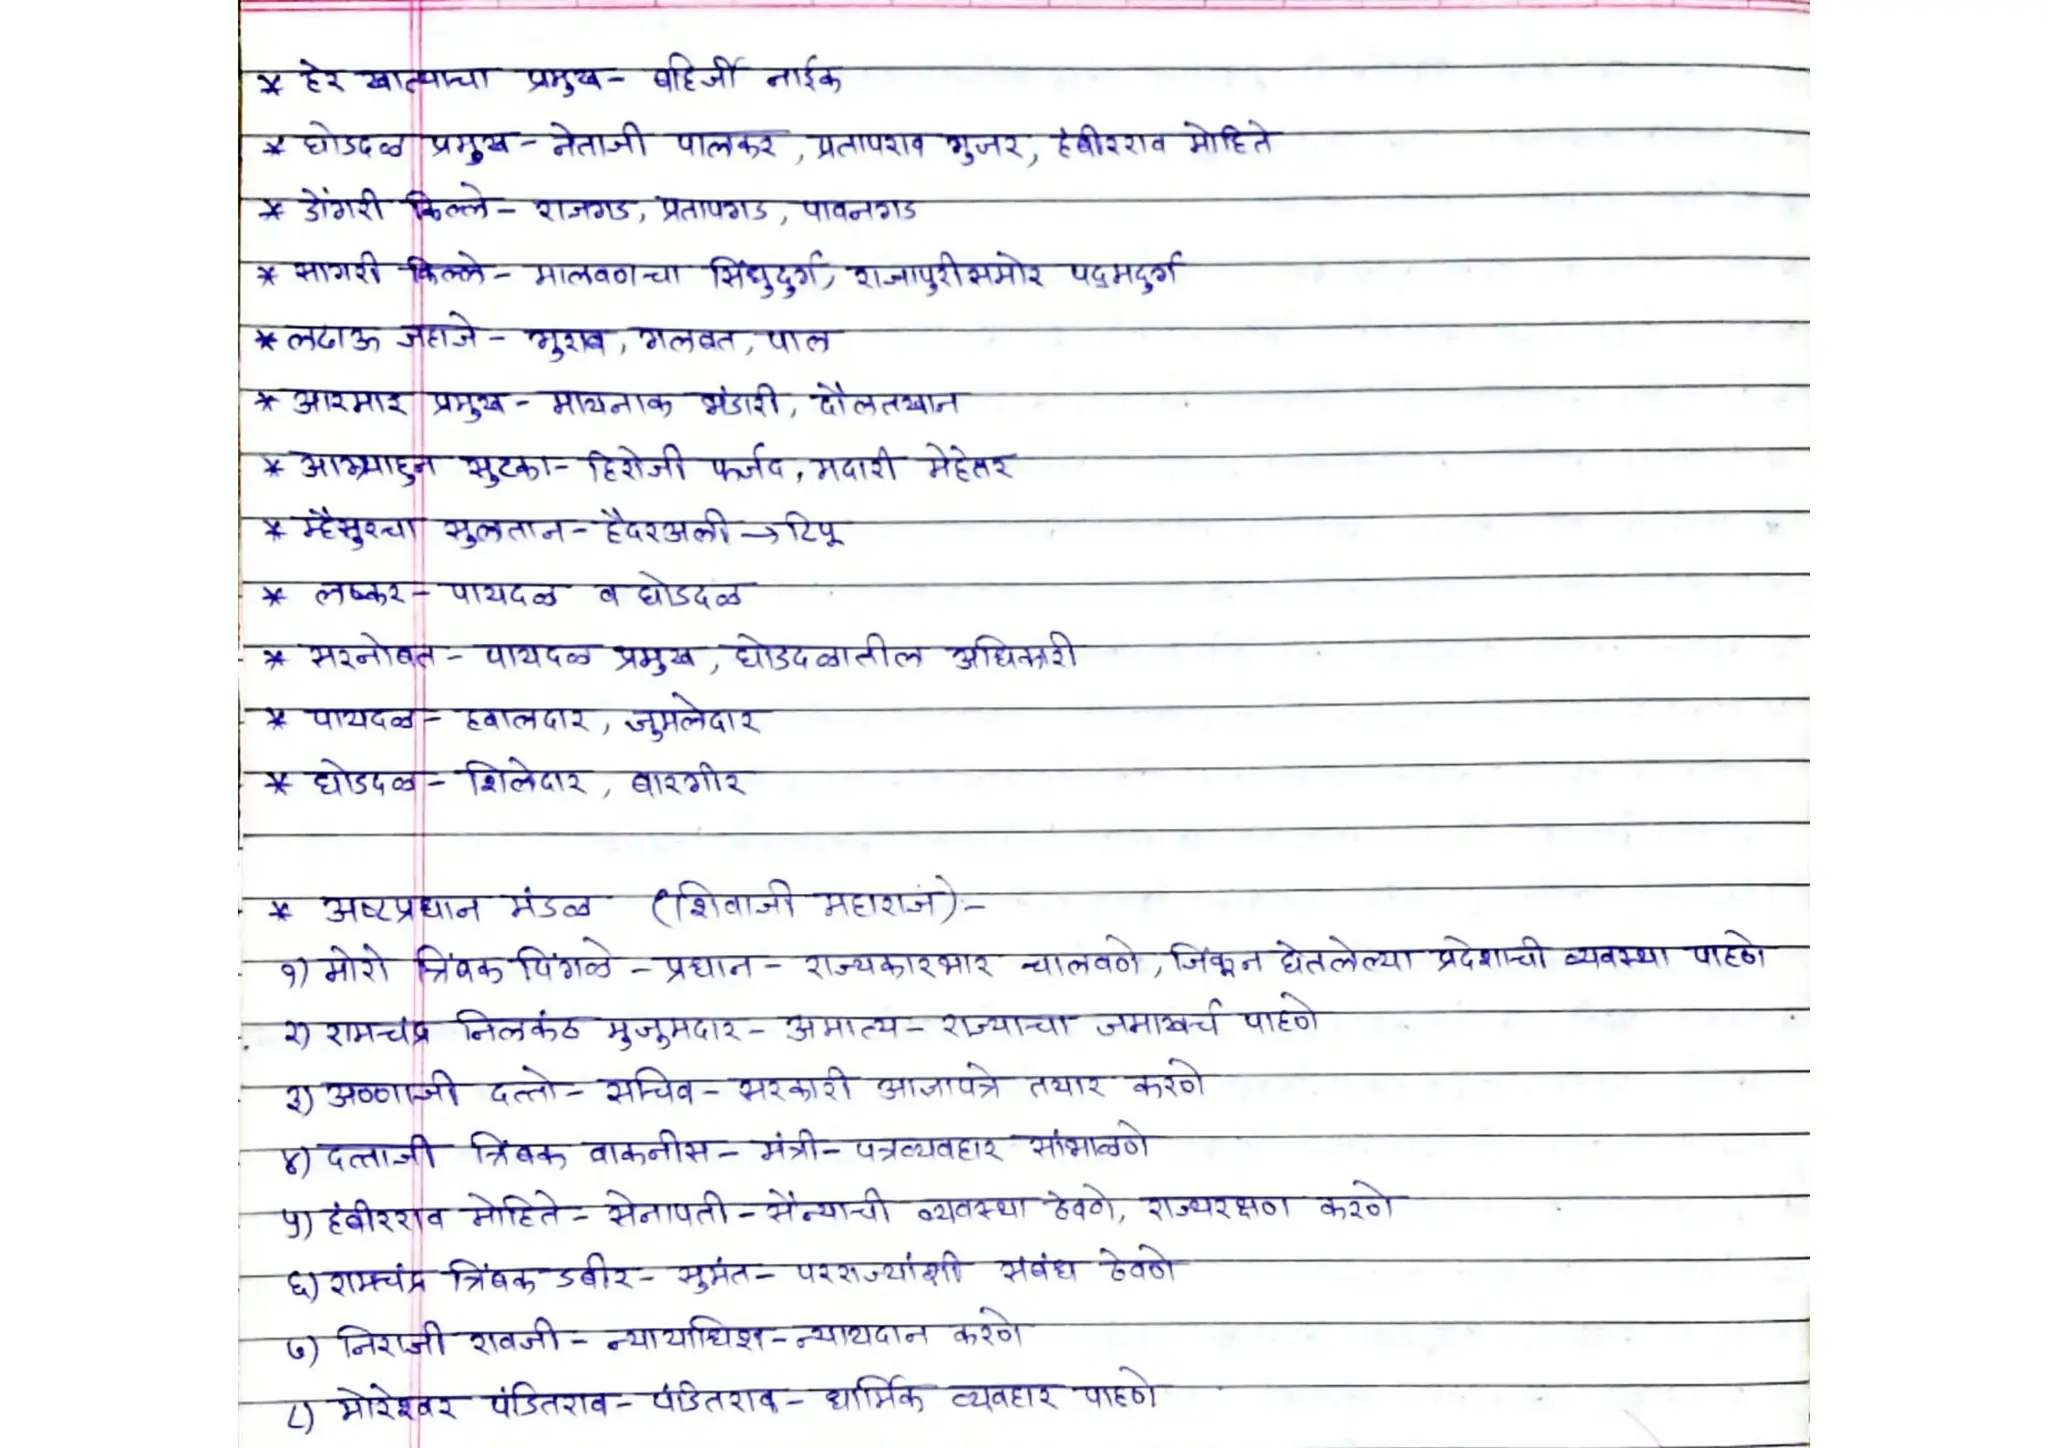 * हेर खात्याचा प्रमुख - बहिर्जी नाईक
* घोडदळ प्रमुख - नेताजी पालकर, प्रतापराव गुजर, हंबीरराव मोहिते
* डोंगरी किल्ले - राजगड, प्रतापगड, पावनगड
* सागरी किल्ले - मालवणचा सिंधुदुर्ग, राजापुरीसमोर पद्मदुर्ग
* लढाऊ जहाजे - गुराब, गलबत, पाल
* आरमार प्रमुख - मायनाक भंडारी, दौलतखान
* आग्र्याहुन सुटका - हिरोजी फर्जद, मदारी मेहेतर
* म्हैसुरचा सुलतान - हैदरअली → टिपू
* लष्कर - पायदळ व घोडदळ
* सरनोबत - पायदळ प्रमुख, घोडदळातील अधिकारी
* पायदळ - हवालदार, जुमलेदार
* घोडदळ - शिलेदार, बारगीर
* अष्टप्रधान मंडळ (शिवाजी महाराज) :-
१) मोरो त्रिंबक पिंगळे - प्रधान - राज्यकारभार चालवणे, जिंकून घेतलेल्या प्रदेशाची व्यवस्था पाहणे
२) रामचंद्र निलकंठ मुजुमदार - अमात्य - राज्याचा जमाखर्च पाहणे
३) अण्णाजी दत्तो - सचिव - सरकारी आज्ञापत्रे तयार करणे
४) दत्ताजी त्रिंबक वाकनीस - मंत्री - पत्रव्यवहार सांभाळणे
५) हंबीरराव मोहिते - सेनापती - सैन्याची व्यवस्था ठेवणे, राज्यरक्षण करणे
६) रामचंद्र त्रिंबक डबीर - सुमंत - परराज्यांशी संबंध ठेवणे
७) निराजी रावजी - न्यायाधिश - न्यायदान करणे
८) मोरेश्वर पंडितराव - पंडितराव - धार्मिक व्यवहार पाहणे